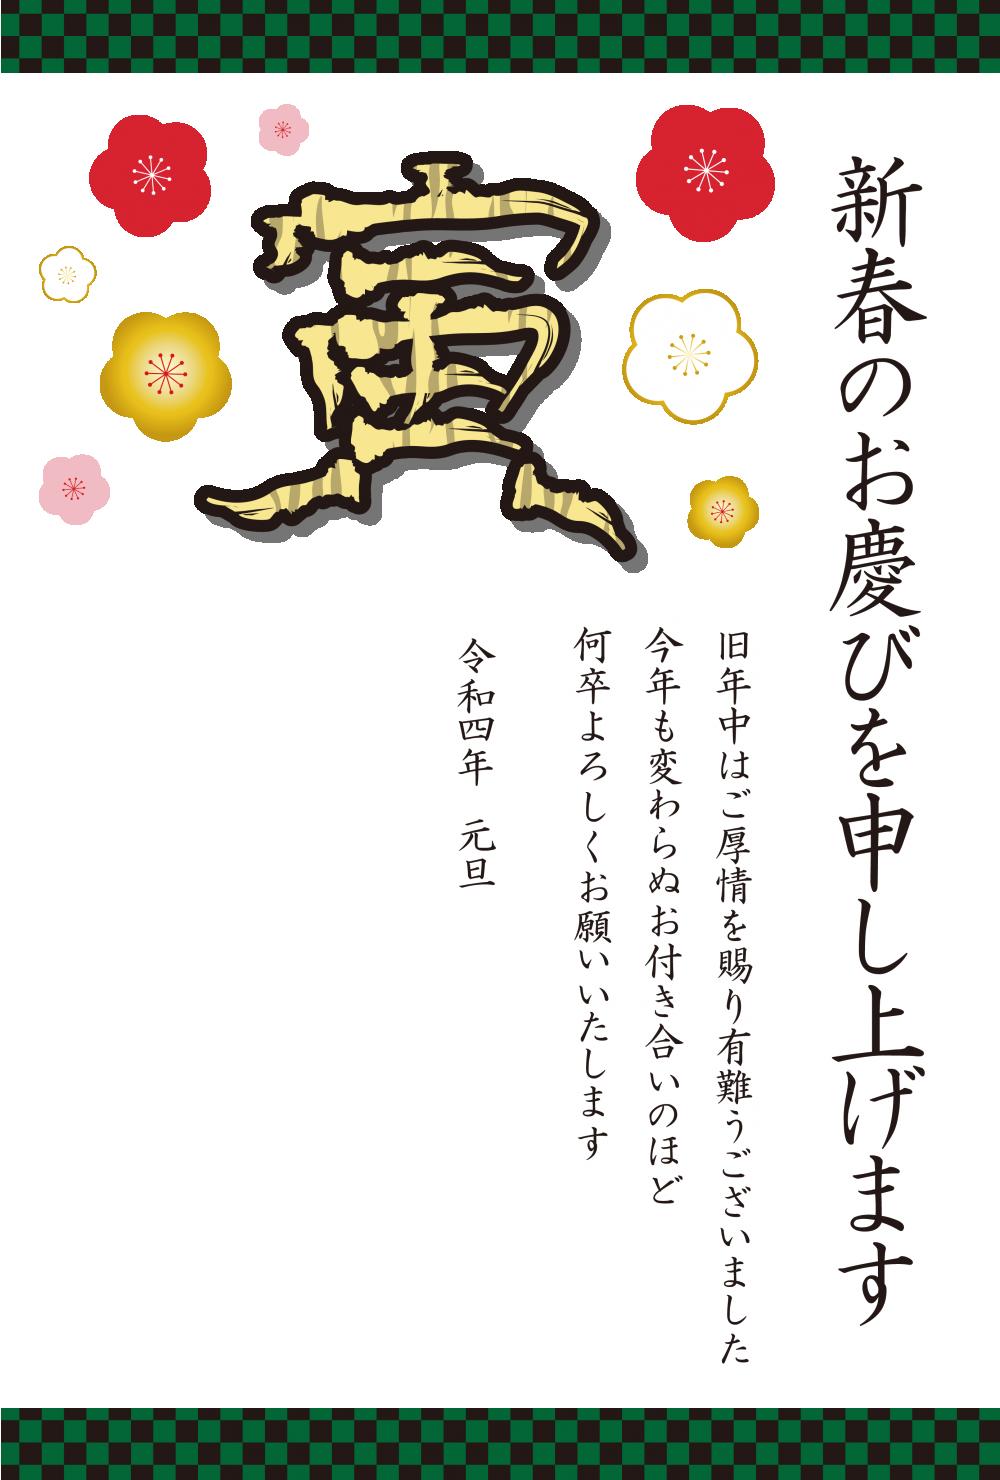 新春のお慶びを申し上げます
寅
旧年中はご厚情を賜り有難うございました
今年も変わらぬお付き合いのほど
何卒よろしくお願いいたします
令和四年　元旦